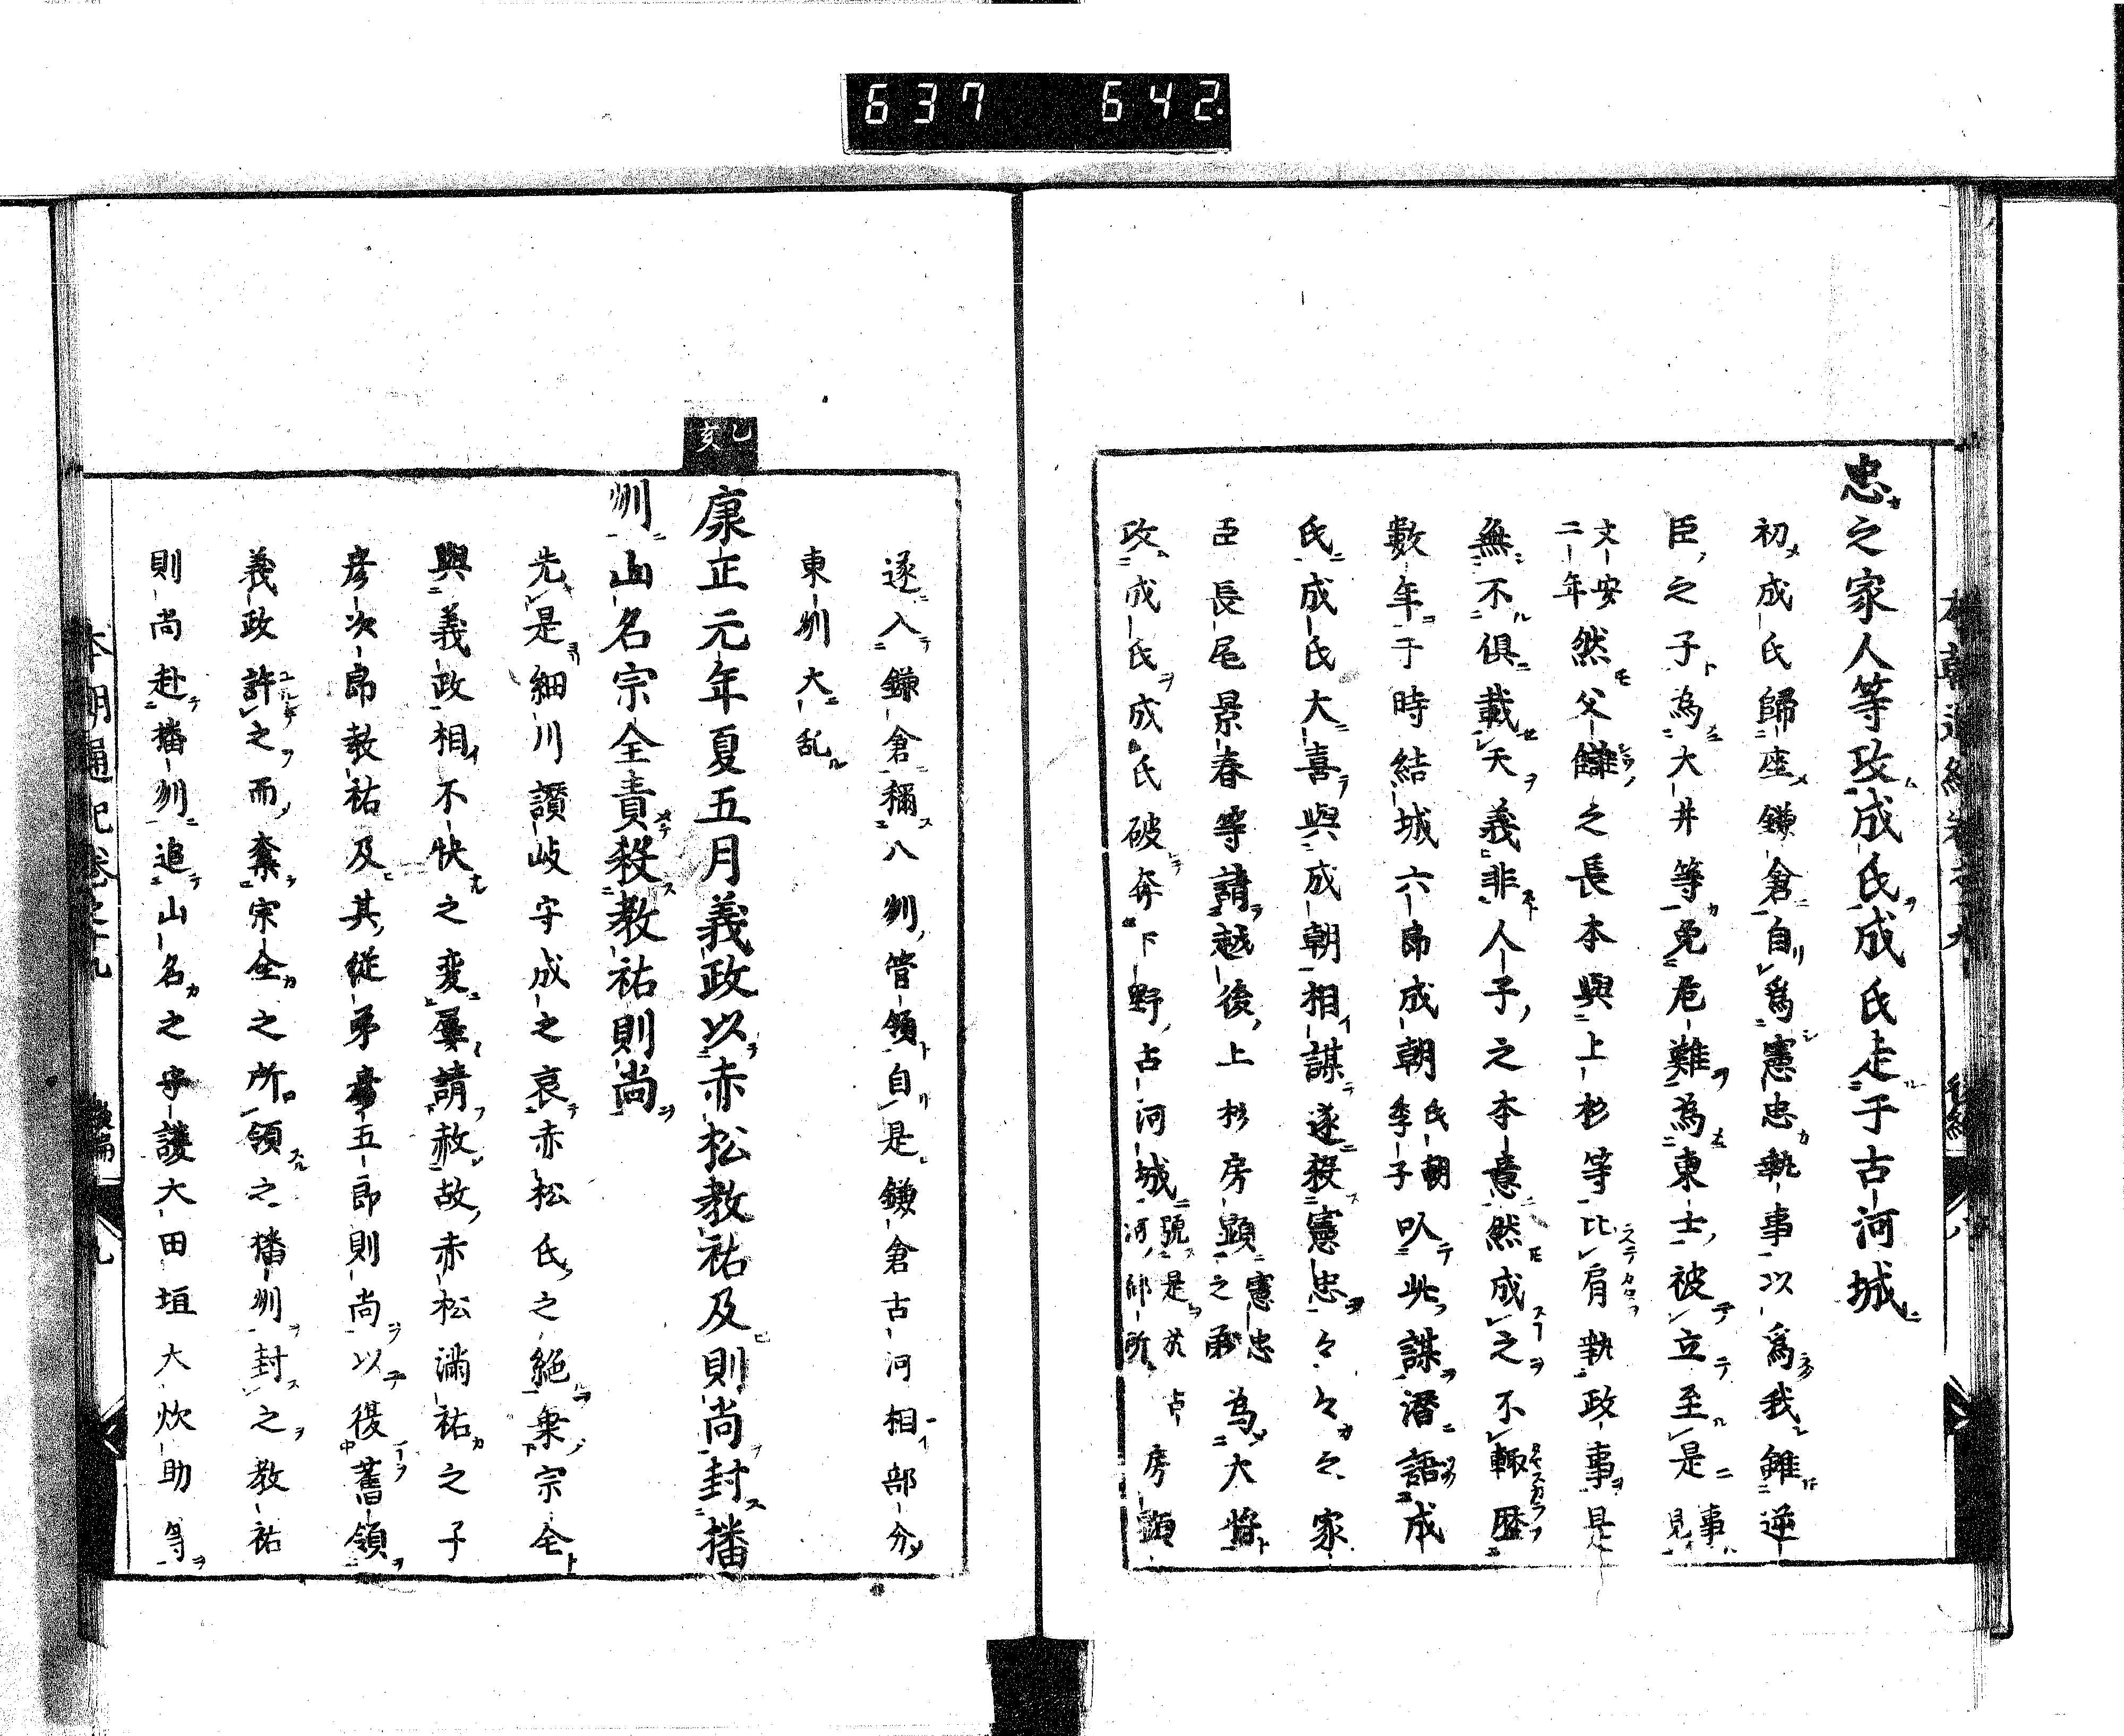 637 642
忠之家人等攻成氏成氏走于古河城
初成氏歸座鎌倉自爲憲忠執事以爲我雖逆
臣之子為大井等免危難為東士被立至是事見
文安二年然父讎之長本與上杉等比肩執政事是
無不俱載天義非人子之本意然成之不輙歷
數年于時結城六郎成朝氏朝季子以此謀潛語成
氏成氏大喜與成朝相謀遂殺憲忠々々々家
臣長尾景春等請越後上杉房顯憲忠之
為大將
攻成氏成氏破奔下野古河城號是
河御所
房顯
遂入鎌倉稱八州管領自是鎌倉古河相部分
東州大乱
乙亥
康正元年夏五月義政以赤松教祐及則尚封播
州山名宗全責殺教祐則尚
先是細川讚岐守成之哀赤松氏之絶乗宗全
與義政相不快之変屡請赦故赤松満祐之子
彦次郎教祐及其從弟彥五郎則尚以復舊領
義政許之而奪宗全之所領之播州封之教祐
則尚赴播州追山名之守護大田垣大炊助等
本朝通紀巻之十九
後編
九